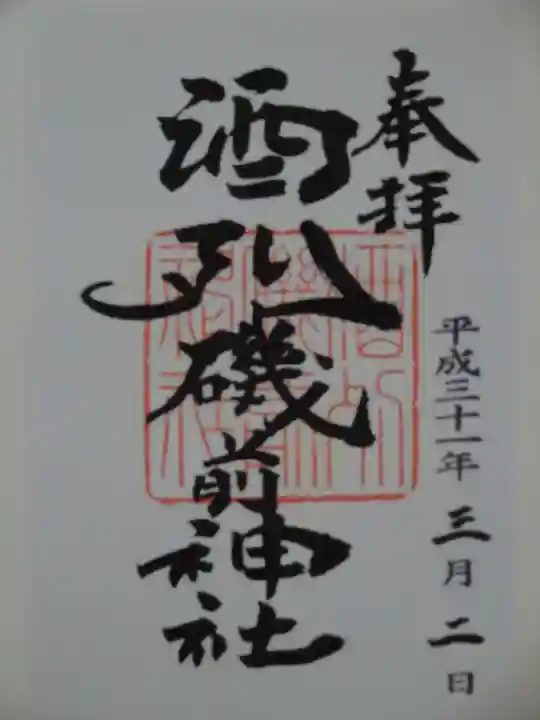 奉拝
平成三十一年 三月 二日
酒列磯前神社